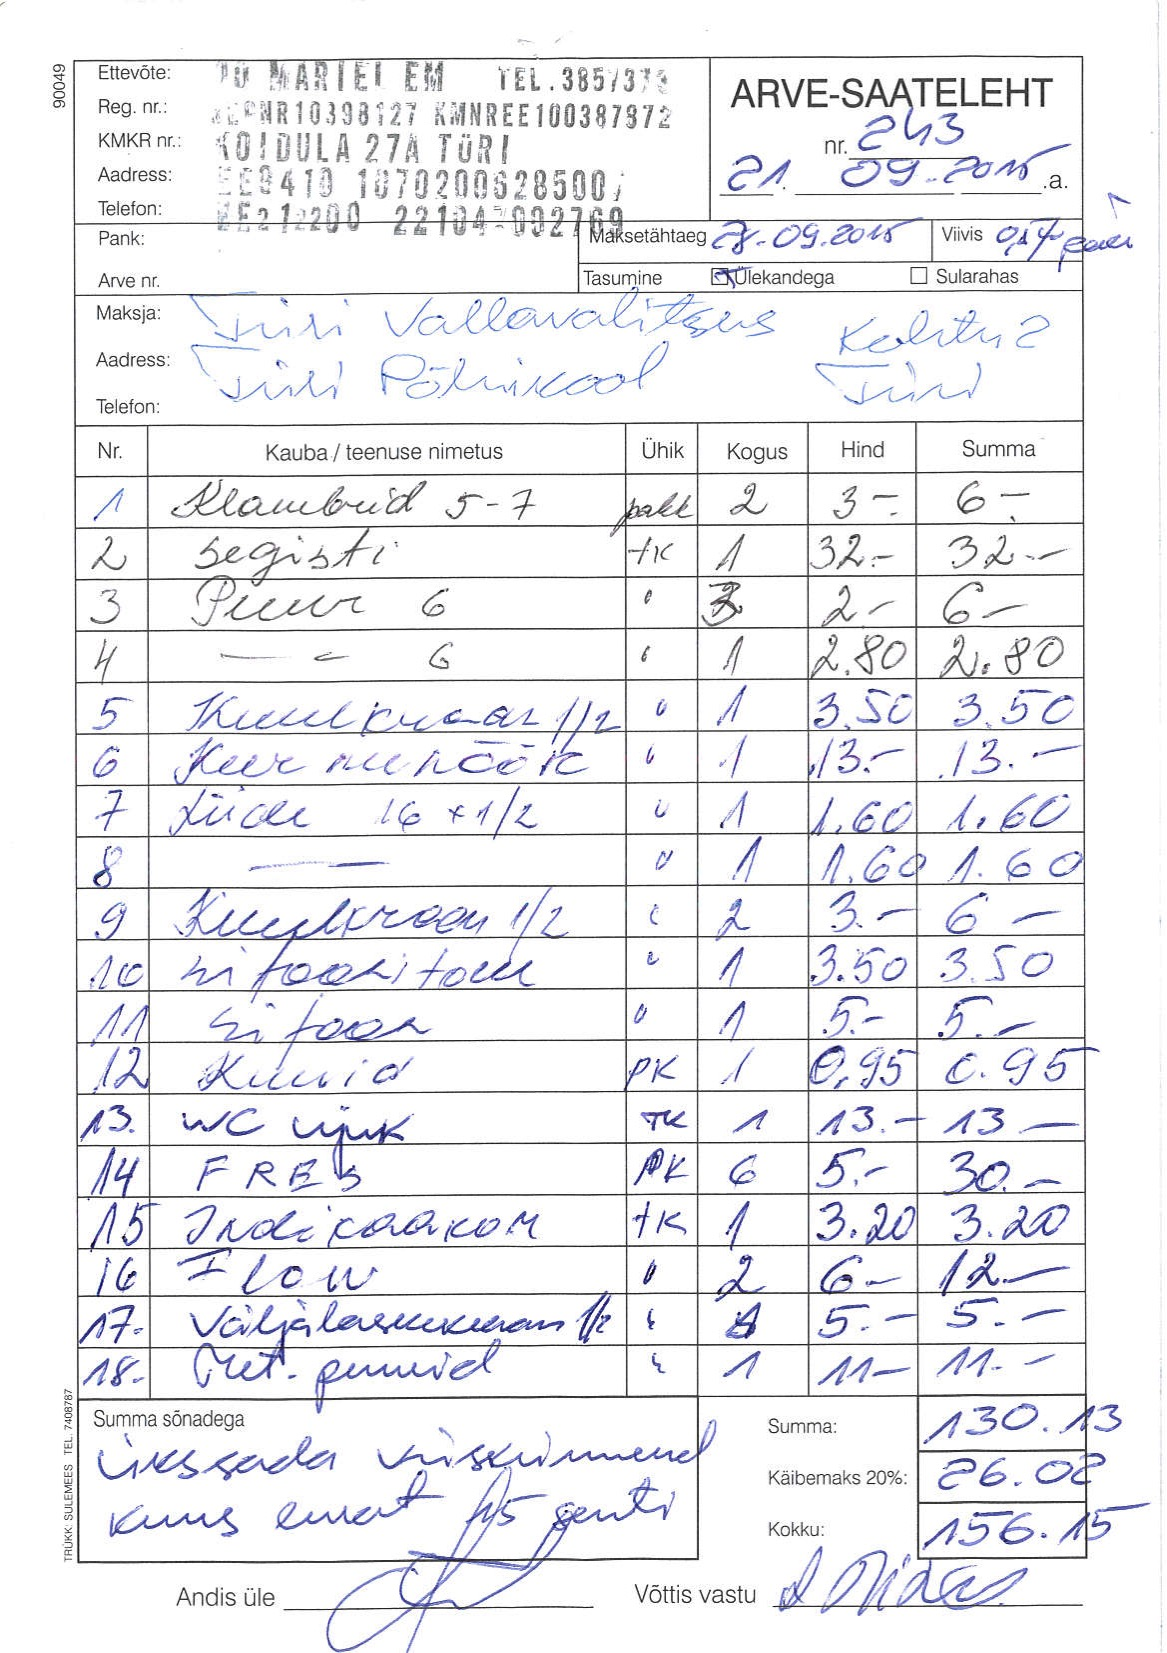 90049
Ettevõte: MARIEL EM TEL.385/373
Reg. nr.: 10398127 KMNREE100387872
KMKR nr.: KOIDULA 27A TÜRI
Aadress: 1070200628500
Telefon: 22104-002769
ARVE-SAATELEHT
nr. 243
21. 09. 2015 .a.
Pank:
Maksetähtaeg 28.09.2015 Viivis
Arve nr.
Tasumine Ülekandega Sularahas
Maksja: Türi Vallavalitsus Kohtu 2
Aadress: Türi Põhikool Türi
Telefon:
Nr. Kauba / teenuse nimetus Ühik Kogus Hind Summa
1 Klambrid 5-7 pakk 2 3- 6-
2 segisti tk 1 32.- 32.-
3 Puur 6 " 3 2- 6-
4 — " — 6 " 1 2.80 2.80
5 Kuulkraan 1/2 " 1 3.50 3.50
6 " 1 13.- 13.-
7 Liide 16 x 1/2 " 1 1.60 1.60
8 — " 1 1.60 1.60
9 Kuulkraan 1/2 " 2 3.- 6-
10 sifooni toru " 1 3.50 3.50
11 sifoon " 1 5.- 5.-
12 PK 1 0,95 0.95
13. WC ujuk TK 1 13.- 13-
14 PK 6 5.- 30.-
15 tK 1 3.20 3.20
16 Flow " 2 6- 12.-
17. Väljalaskekraan 1/2 " 1 5.- 5.-
18. Met. puurid " 1 11- 11.-
Summa sõnadega
Ükssada viiskümmend
kuus eurot 15 senti
Summa: 130.13
Käibemaks 20%: 26.02
Kokku: 156.15
TRÜKK: SULEMEES TEL. 7408787
Andis üle
Võttis vastu